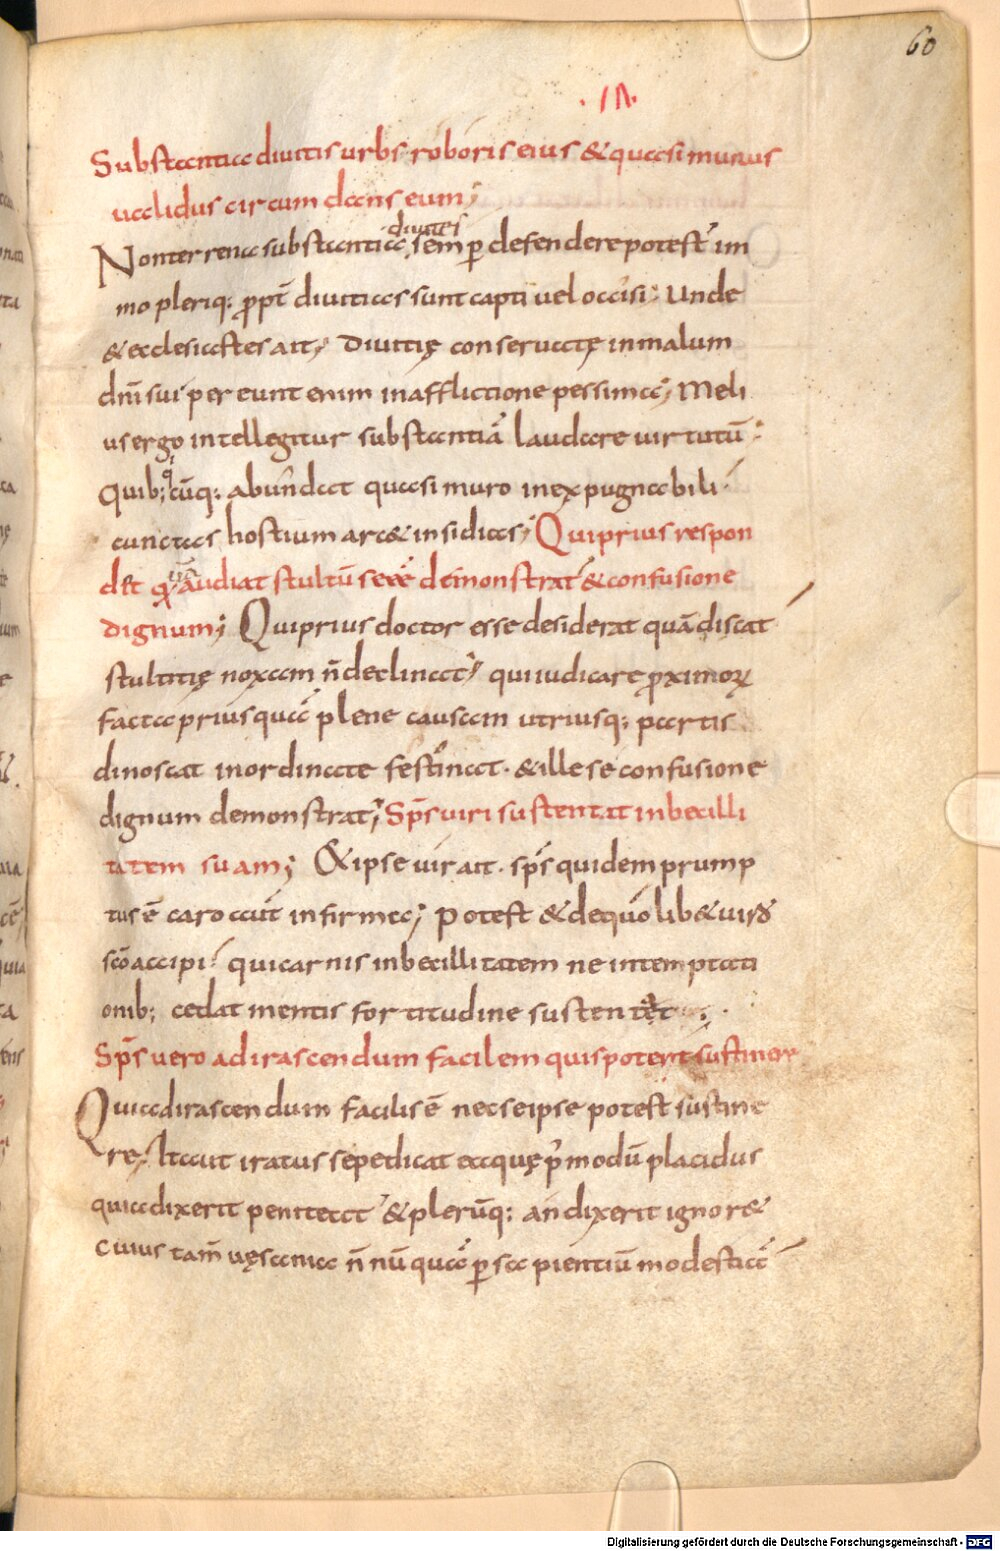 60
Substantia diuitis urbs roboris eius & quasi murus
ualidus circum dans eum;
diuites
Non terrena substantia semp defendere potest im
mo pleriq; ppt diuitias sunt capti uel occisi; Unde
& ecclesiastes ait; Diuitię conseruatę in malum
dñi sui pereunt enim in afflictione pessima; Meli
us ergo intellegitur substantiā laudare uirtutū;
Quib; cūq; abundat quasi muro inexpugnabili
cunctas hostium arc& insidias; Qui prius respon
d&t audiat stultū se eē demonstrat & confusione
dignum; Qui prius doctor esse desiderat quā discat
stultitię noxam ñ declinat; qui iudicare pximoꝝ
facta prius quā plene causam utriusq; partis
dinoscat inordinate festinat. & ille se confusione
dignum demonstrat; Sps uiri sustentat inbecilli
tatem suam; & ipse uir ait. sps quidem prump
tus ē caro aut infirma; Potest & de quolib& uiro
scō accipi qui carnis inbecillitatem ne in temptati
onib; cedat mentis fortitudine sustentet
Sps uero ad irascendum facilem quis poterit sustinere
Qui ad irascendum facilis ē nec se ipse potest sustine
re; Ita ut iratus sepe dicat ea quę p modū placidus
quia dixerit peniteat & plerūq; an dixerit ignor&
Cuius tam uęsania ñ nūquā p sapientiū modestiā